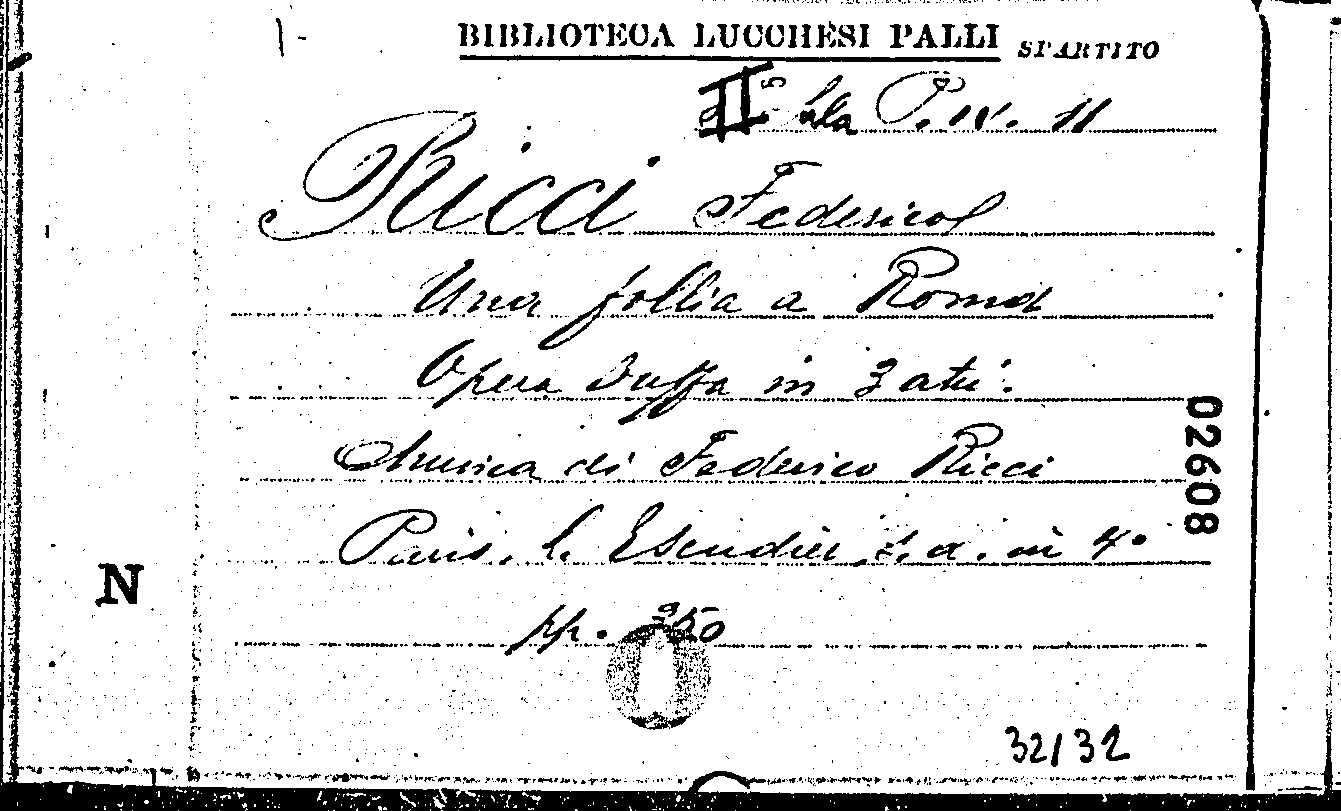 1-
BIBLIOTECA LUCCHESI PALLI SPARTITO
II Sala P. IV. 11
Ricci Federico
Una follia a Roma
Opera buffa in 3 atti.
Musica di Federico Ricci
Paris. L. Escudier, s. a. in 4º
pp. 350
02608
N
32132